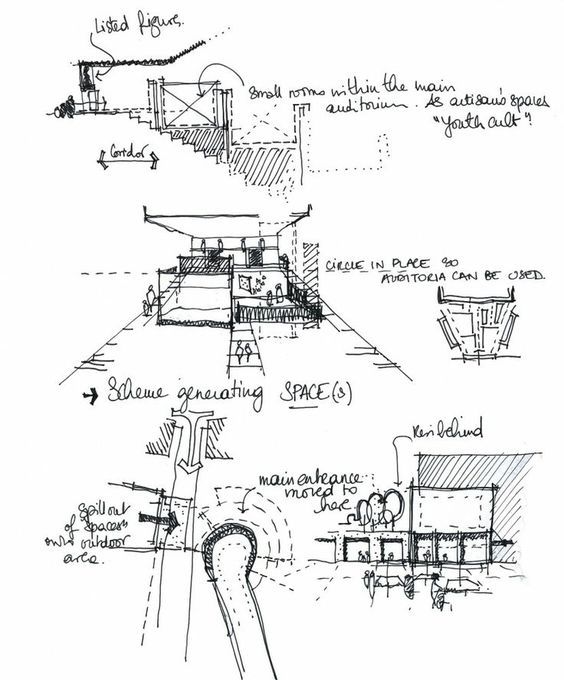 Listed figures.
Small rooms within the main
auditorium. As artisan's spaces
"Youth cult"!
Corridor
CIRCLE IN PLACE SO
AUDITORIA CAN BE USED.
→ Scheme generating SPACE(S)
behind
main entrance
moved to
here.
Spill out
of spaces
onto outdoor
area.